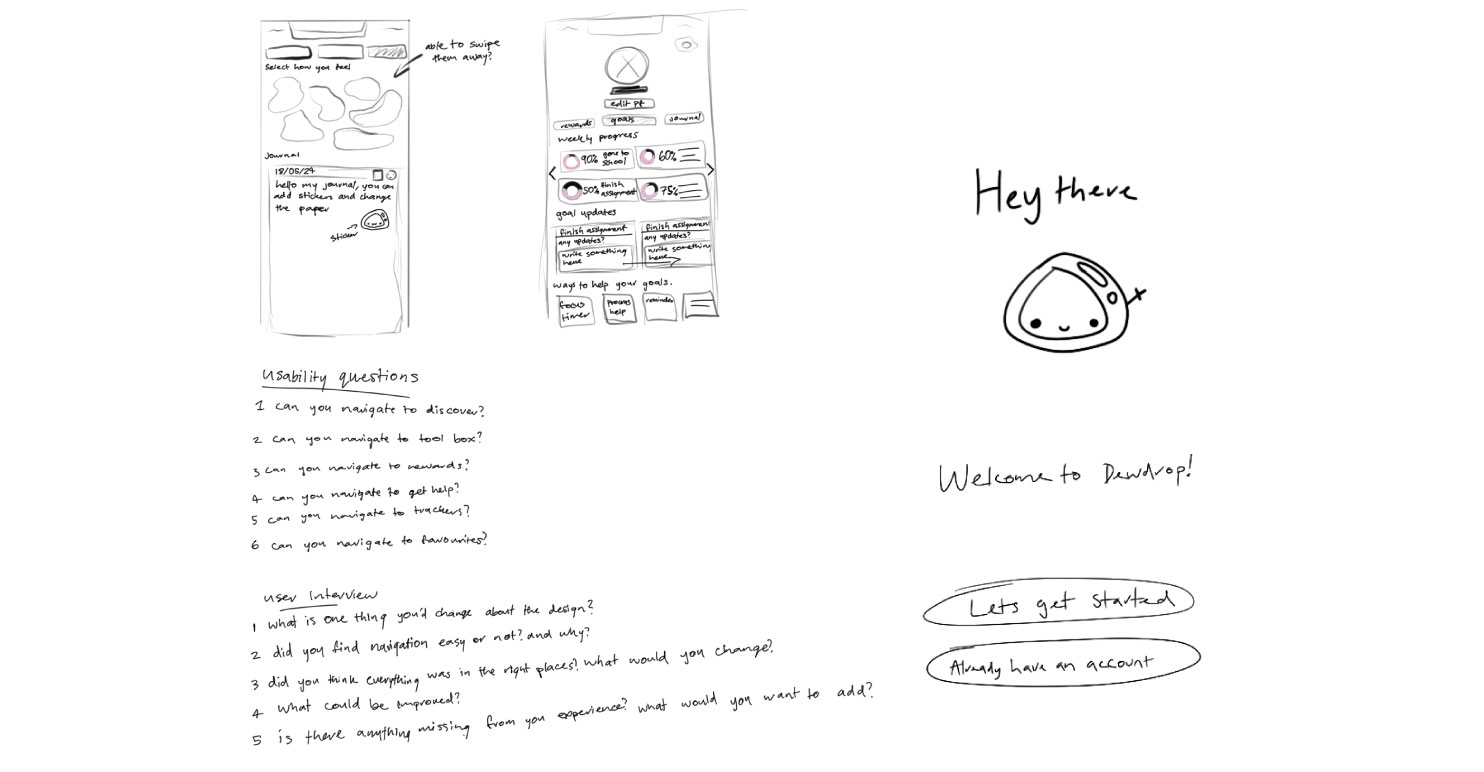 able to swipe
them away?
Select how you feel
Journal
18/05/24
hello my journal, you can
add stickers and change
the paper
sticker
edit pf
rewards
goals
journal
weekly progress
90% gone to
school
60%
50% finish
assignment
75%
goal updates
finish assignment
any updates?
write something
here
finish assignment
any updates?
write something
here
ways to help your goals.
focus
timer
process
help
reminder
Hey there
Welcome to Dewdrop!
Lets get started
Already have an account
Usability questions
1 can you navigate to discover?
2 can you navigate to tool box?
3 can you navigate to rewards?
4 can you navigate to get help?
5 can you navigate to trackers?
6 can you navigate to favourites?
User Interview
1 what is one thing you'd change about the design?
2 did you find navigation easy or not? and why?
3 did you think everything was in the right places? what would you change?
4 what could be improved?
5 is there anything missing from you experience? what would you want to add?